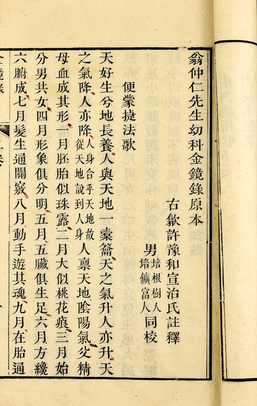 翁仲仁先生幼科金鏡錄原本
古歙許豫和宣治氏註釋
男
培根樹人
培鑛富人
同校
便蒙捷法歌
天好生兮地長養人與天地一槖籥天之氣升人亦升天
之氣降人亦降
人身合乎天地故
從天地說到人身
人禀天地陰陽氣父精
母血成其形一月胚胎似珠露二月大似桃花痕三月始
分男共女四月形象俱分明五月五臟俱生足六月方纔
六腑成七月髮生通關竅八月動手遊其魂九月在胎過